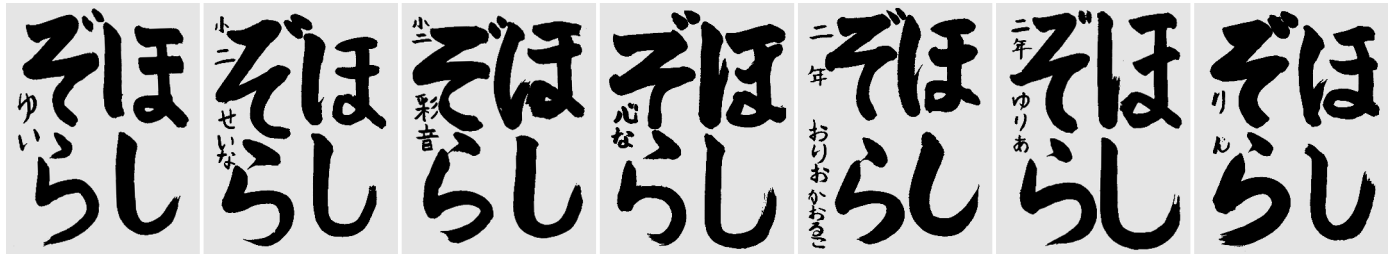 ほし
ぞら
ゆい
ほし
ぞら
小二
せいな
ほし
ぞら
小二
彩音
ほし
ぞら
心な
ほし
ぞら
二年
おりおかおるこ
ほし
ぞら
二年
ゆりあ
ほし
ぞら
りん